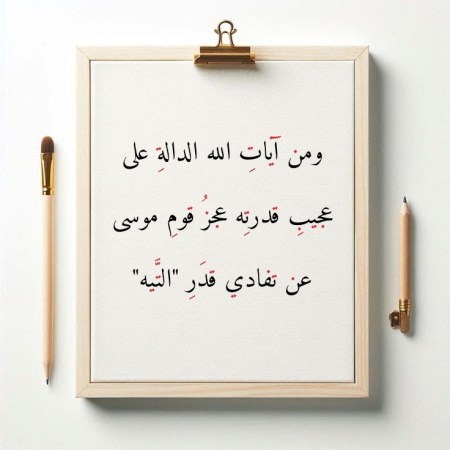 ومن آياتِ الله الدالةِ على
عجيبِ قدرتِه عجزُ قومِ موسى
عن تفادي قدَرِ "التَّيه"